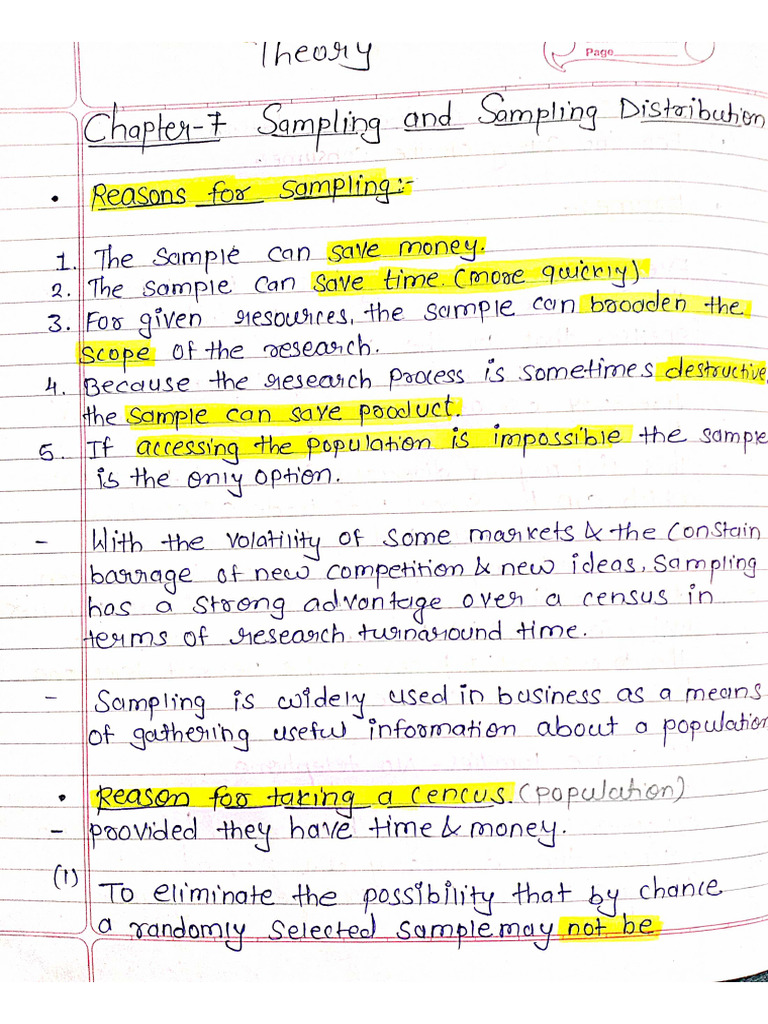 Theory
Page
Chapter-7 Sampling and Sampling Distribution
• Reasons for sampling:-
1. The sample can save money.
2. The sample can save time. (more quickly)
3. For given resources, the sample can broaden the
scope of the research.
4. Because the research process is sometimes destructive,
the sample can save product.
5. If accessing the population is impossible the sample
is the only option.
- With the volatility of some markets & the constain
barrage of new competition & new ideas, sampling
has a strong advantage over a census in
terms of research turnaround time.
- Sampling is widely used in business as a means
of gathering useful information about a population
• Reason for taking a cencus. (population)
- provided they have time & money.
(1) To eliminate the possibility that by chance
a randomly selected sample may not be